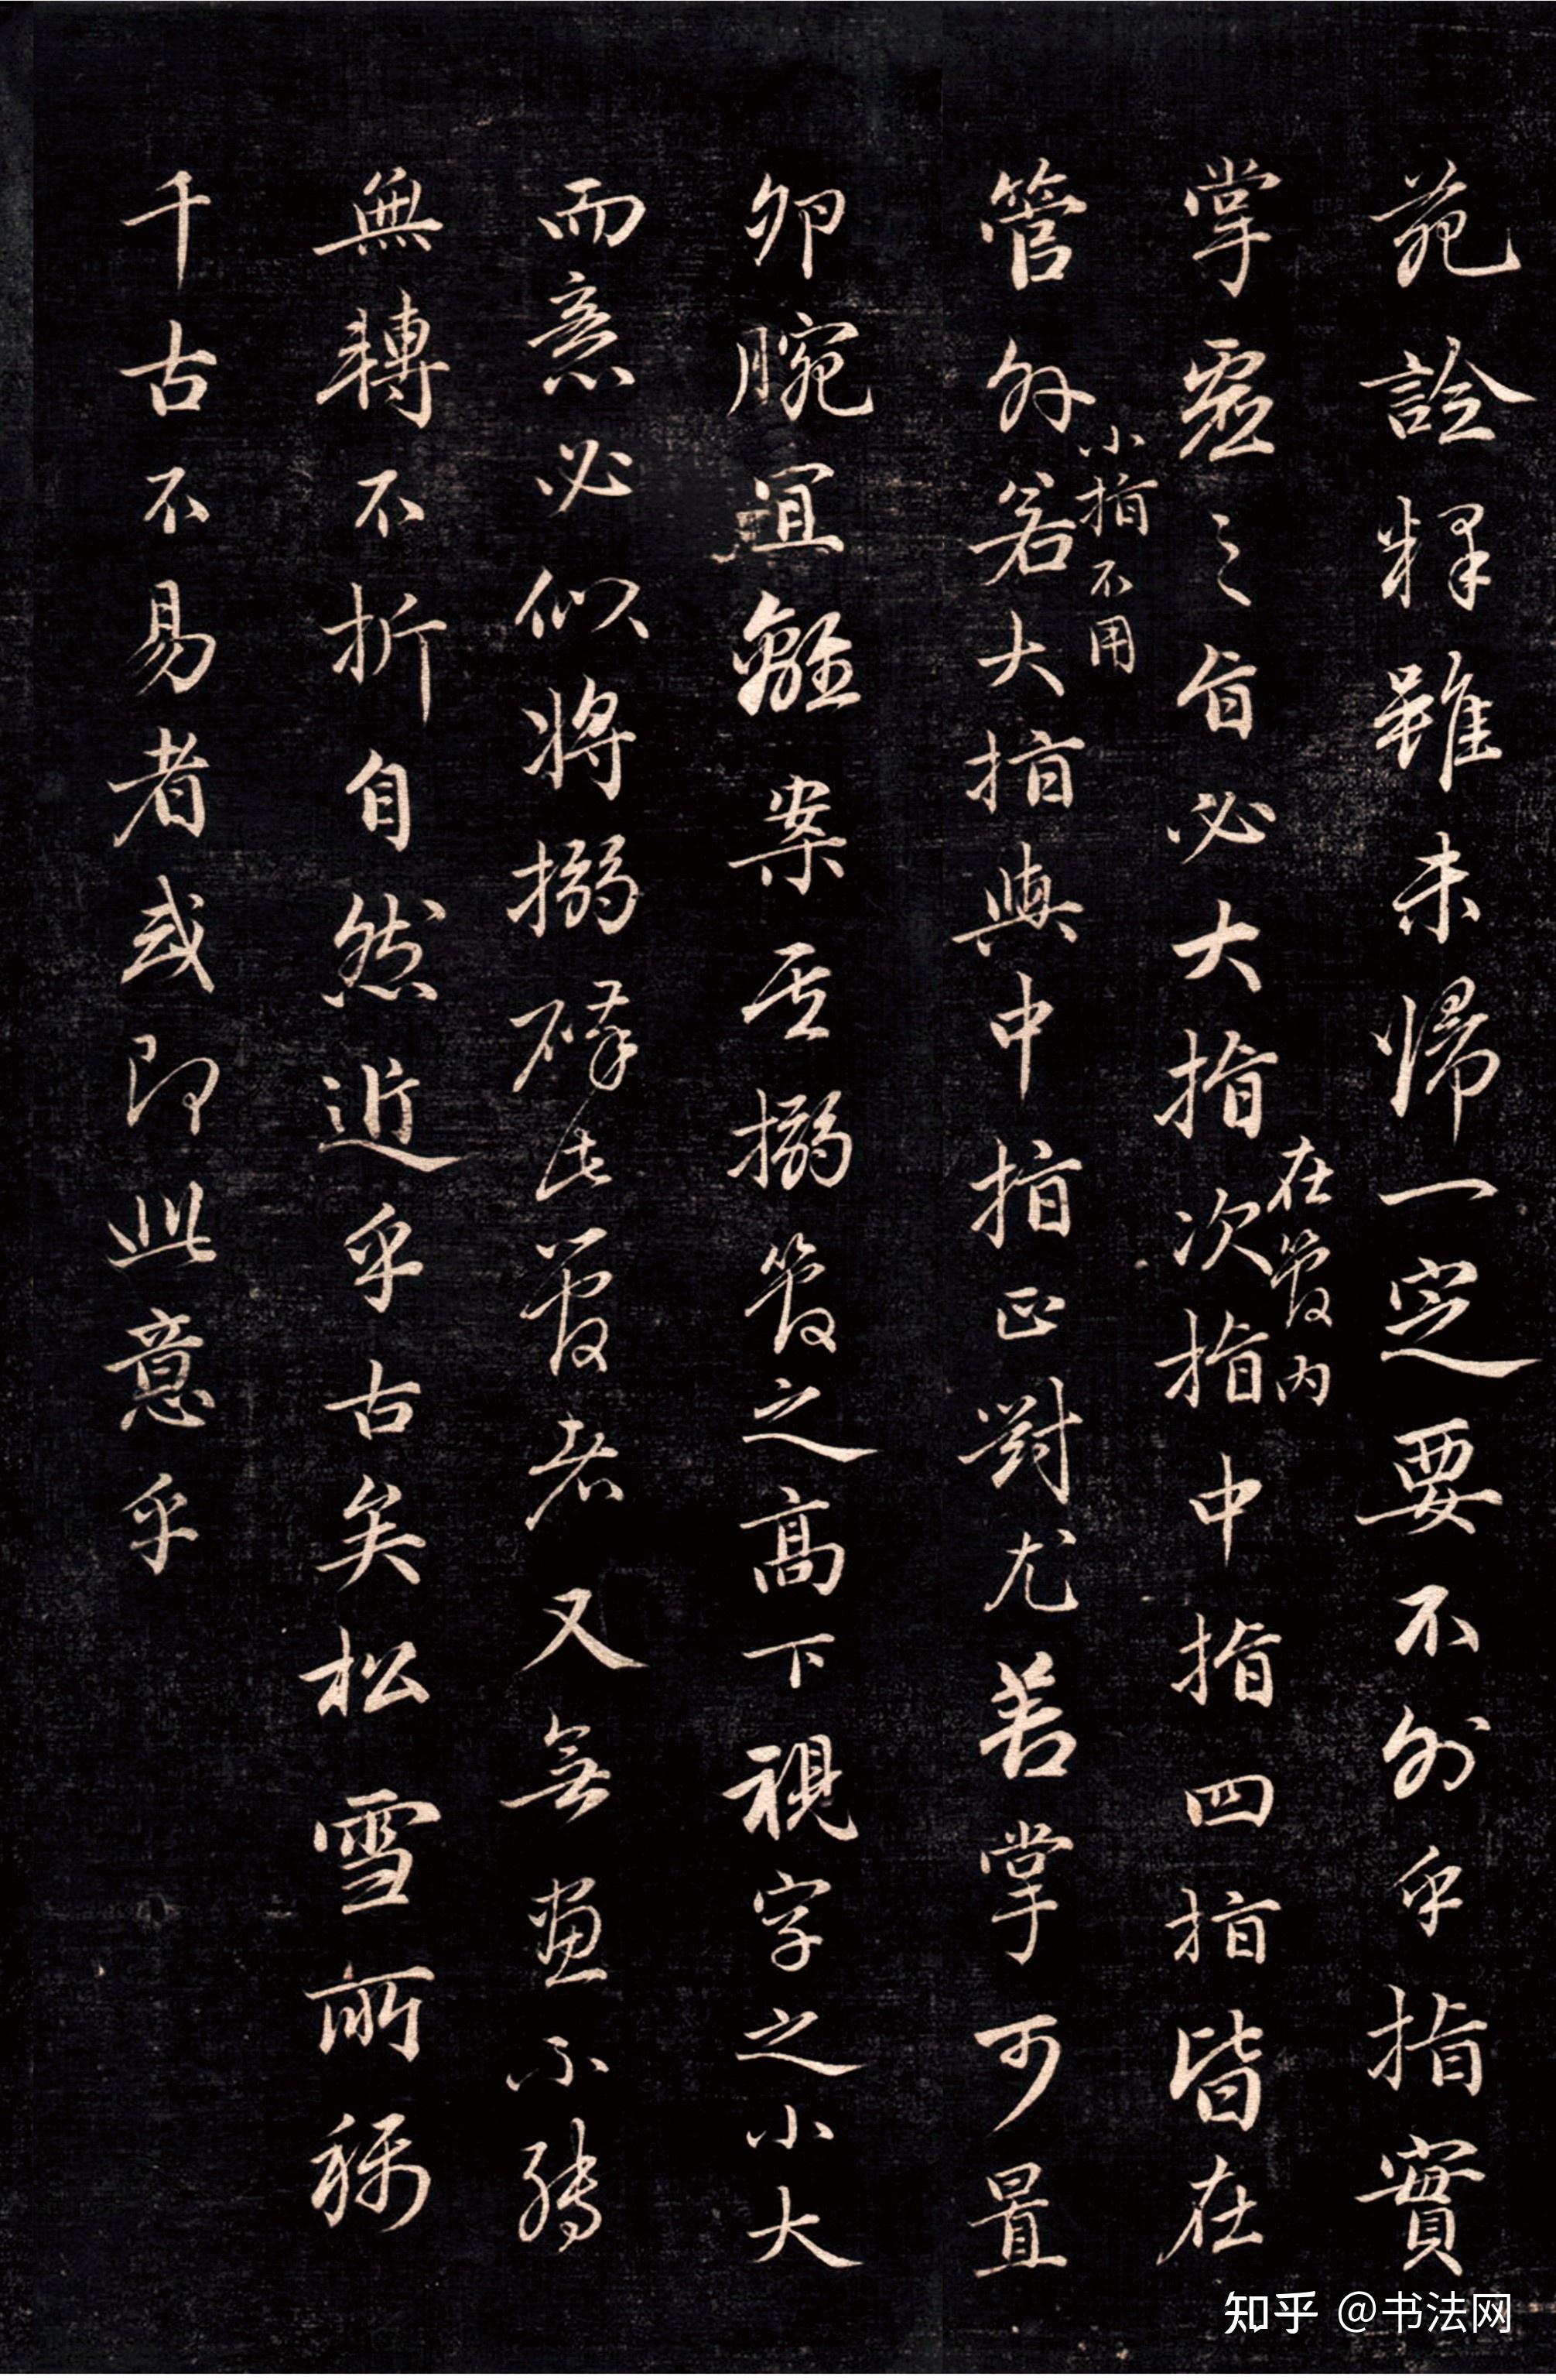 苑詮釋雖未歸一定要不外乎指實
掌虛之旨必大指次指中指四指皆在
在管内
管外若大指與中指正對尤善掌可置
小指不用
卵腕宜離案至搦管之高下視字之小大
而意必似將搦碎此管者又無畫不轉
無轉不折自然近乎古矣松雪所稱
千古不易者或即此意乎
知乎 @书法网